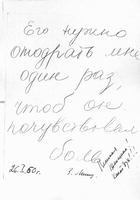 Его нужно
отодрать мне
один раз,
чтоб он
почувствовал
боль
26.I.60г.